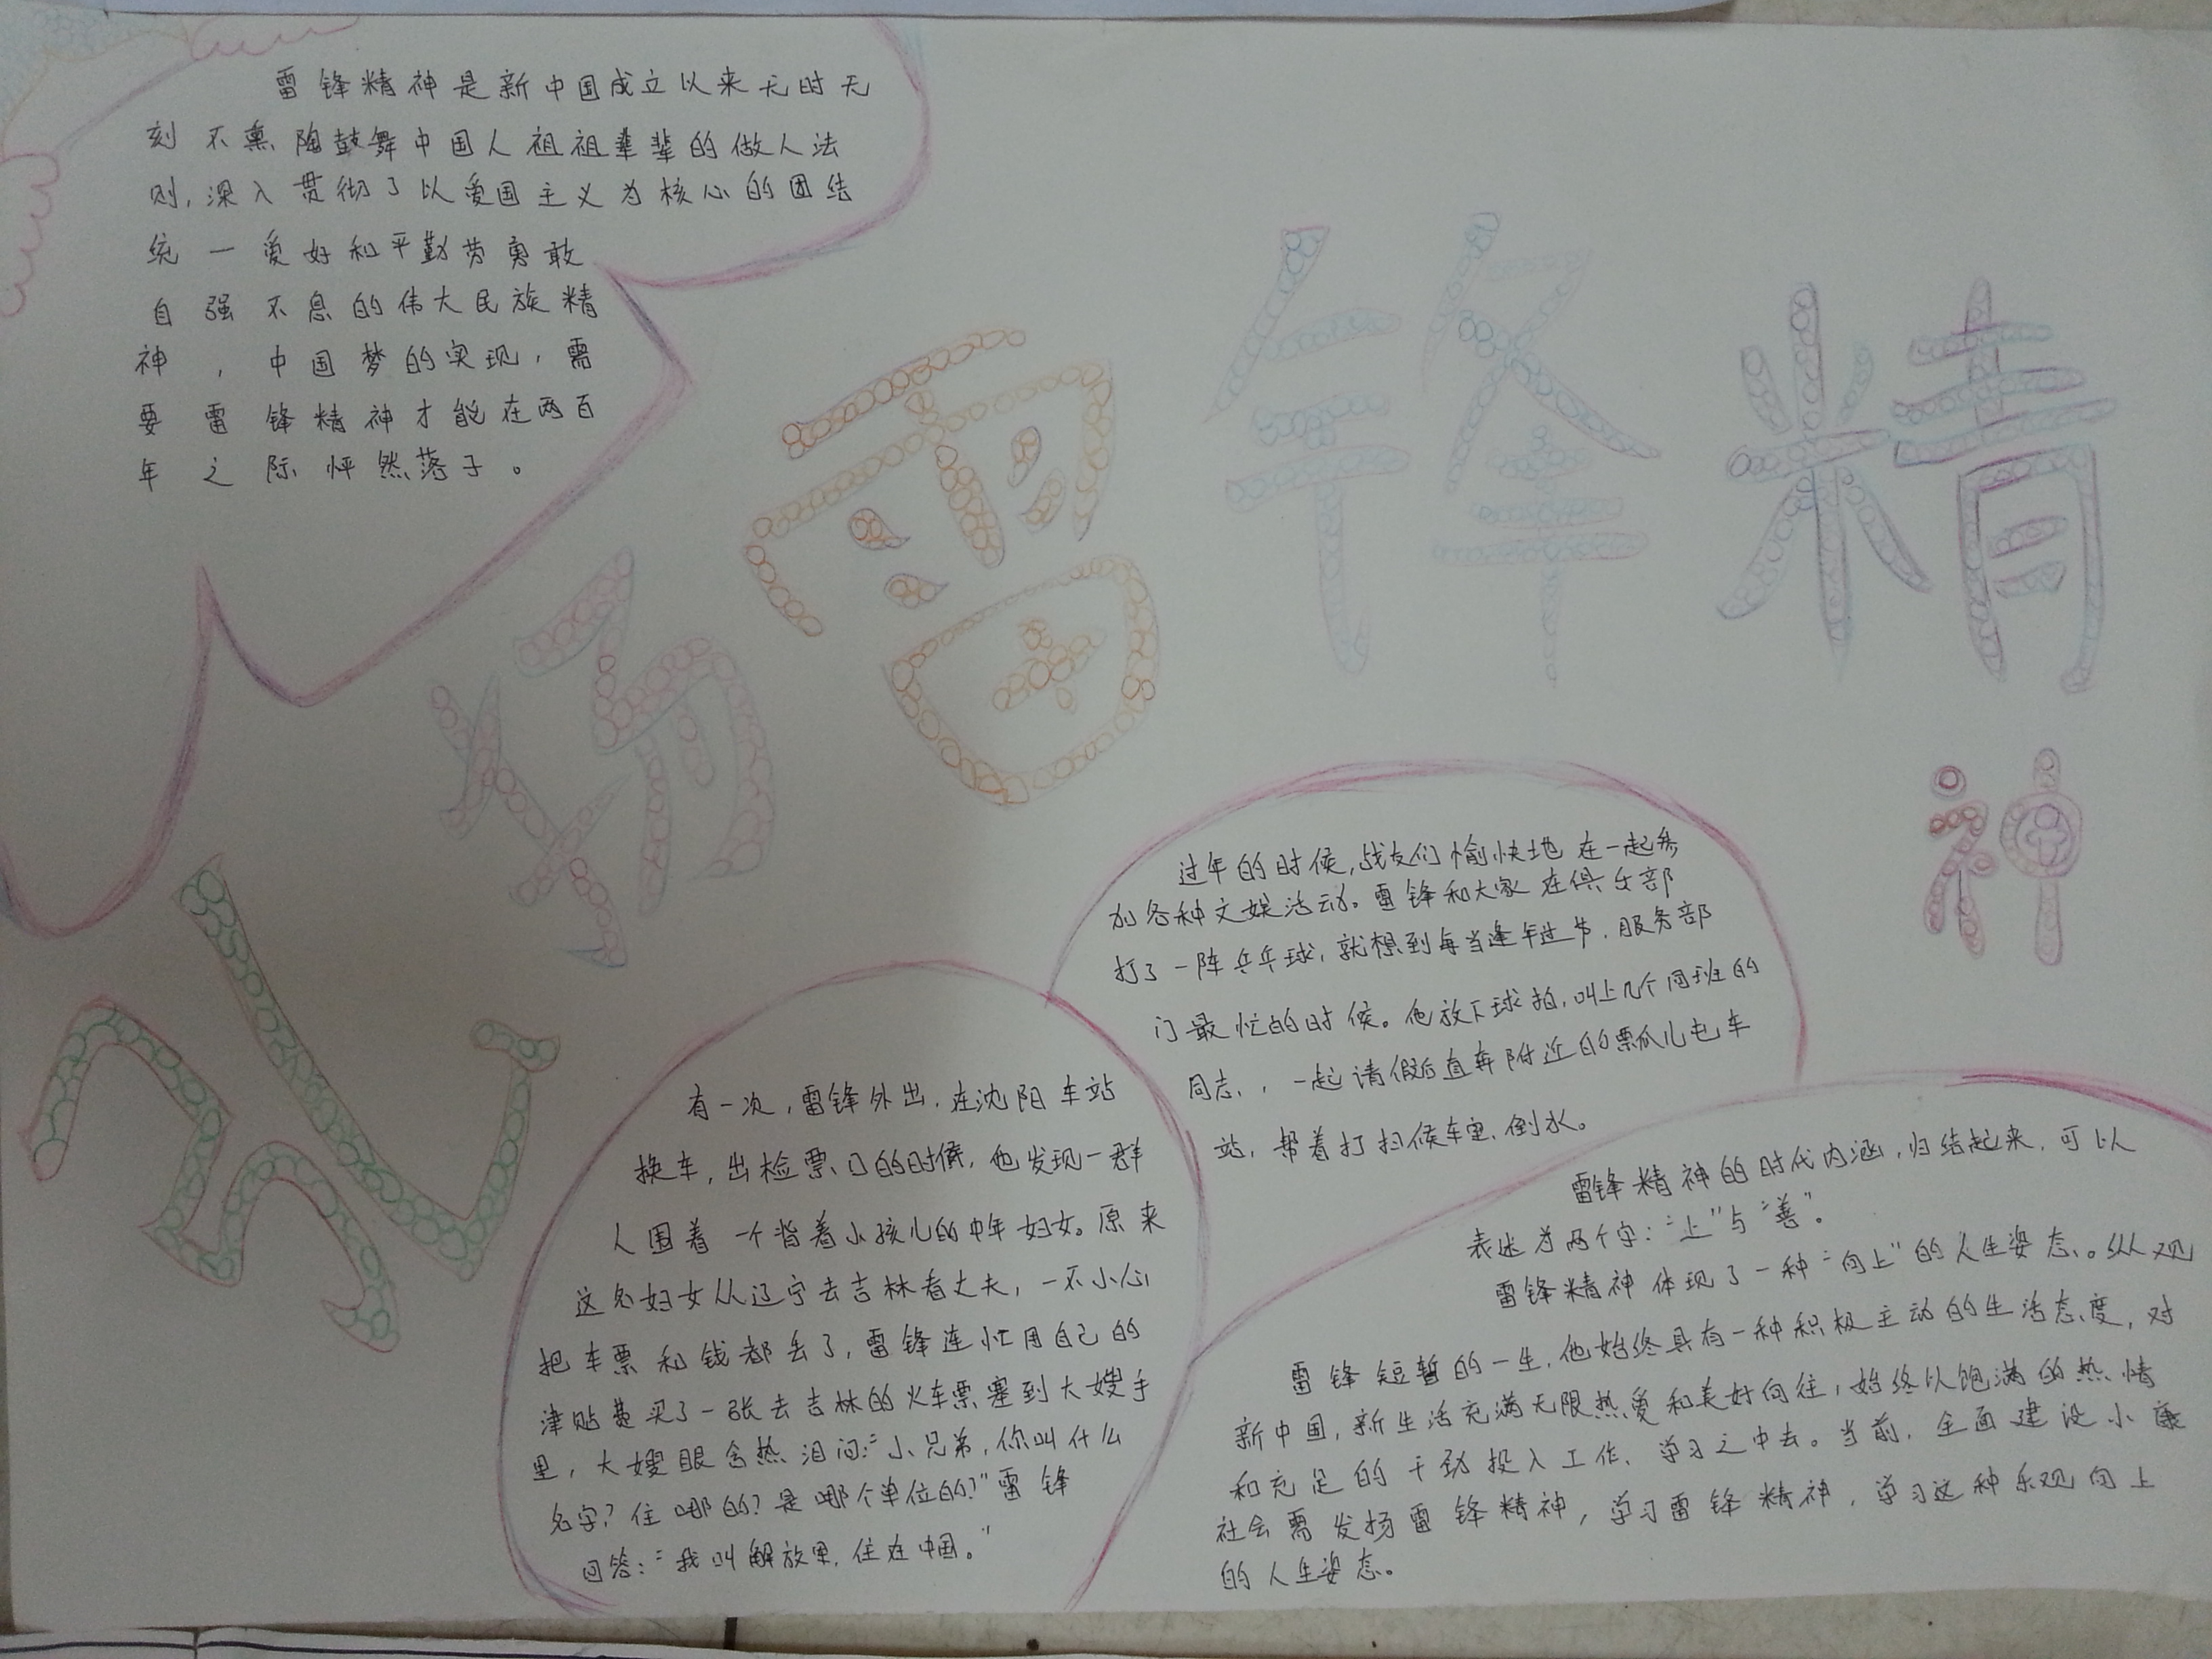 雷锋精神是新中国成立以来无时无
刻不熏陶鼓舞中国人祖祖辈辈的做人法
则,深入贯彻了以爱国主义为核心的团结
统一爱好和平勤劳勇敢
自强不息的伟大民族精
神,中国梦的实现,需
要雷锋精神才能在两百
年之际怦然落子。
弘扬雷锋精
神
过年的时候,战友们愉快地在一起参
加各种文娱活动。雷锋和大家在俱乐部
打了一阵乒乓球,就想到每当逢年过节,服务部
门最忙的时候。他放下球拍,叫上几个同班的
同志,,一起请假后直奔附近的瓢瓜儿屯车
站,帮着打扫候车室,倒水。
有一次,雷锋外出,在沈阳车站
换车,出检票口的时候,他发现一群
人围着一个背着小孩儿的中年妇女。原来
这名妇女从辽宁去吉林看丈夫,一不小心
把车票和钱都丢了,雷锋连忙用自己的
津贴费买了一张去吉林的火车票塞到大嫂手
里,大嫂眼含热泪问:“小兄弟,你叫什么
名字?住哪的?是哪个单位的?”雷锋
回答:“我叫解放军,住在中国。”
雷锋精神的时代内涵,归结起来,可以
表述为两个字:“上”与“善”。
雷锋精神体现了一种“向上”的人生姿态。纵观
雷锋短暂的一生,他始终具有一种积极主动的生活态度,对
新中国,新生活充满无限热爱和美好向往,始终以饱满的热情
和充足的干劲投入工作、学习之中去。当前,全面建设小康
社会需发扬雷锋精神,学习雷锋精神,学习这种乐观向上
的人生姿态。